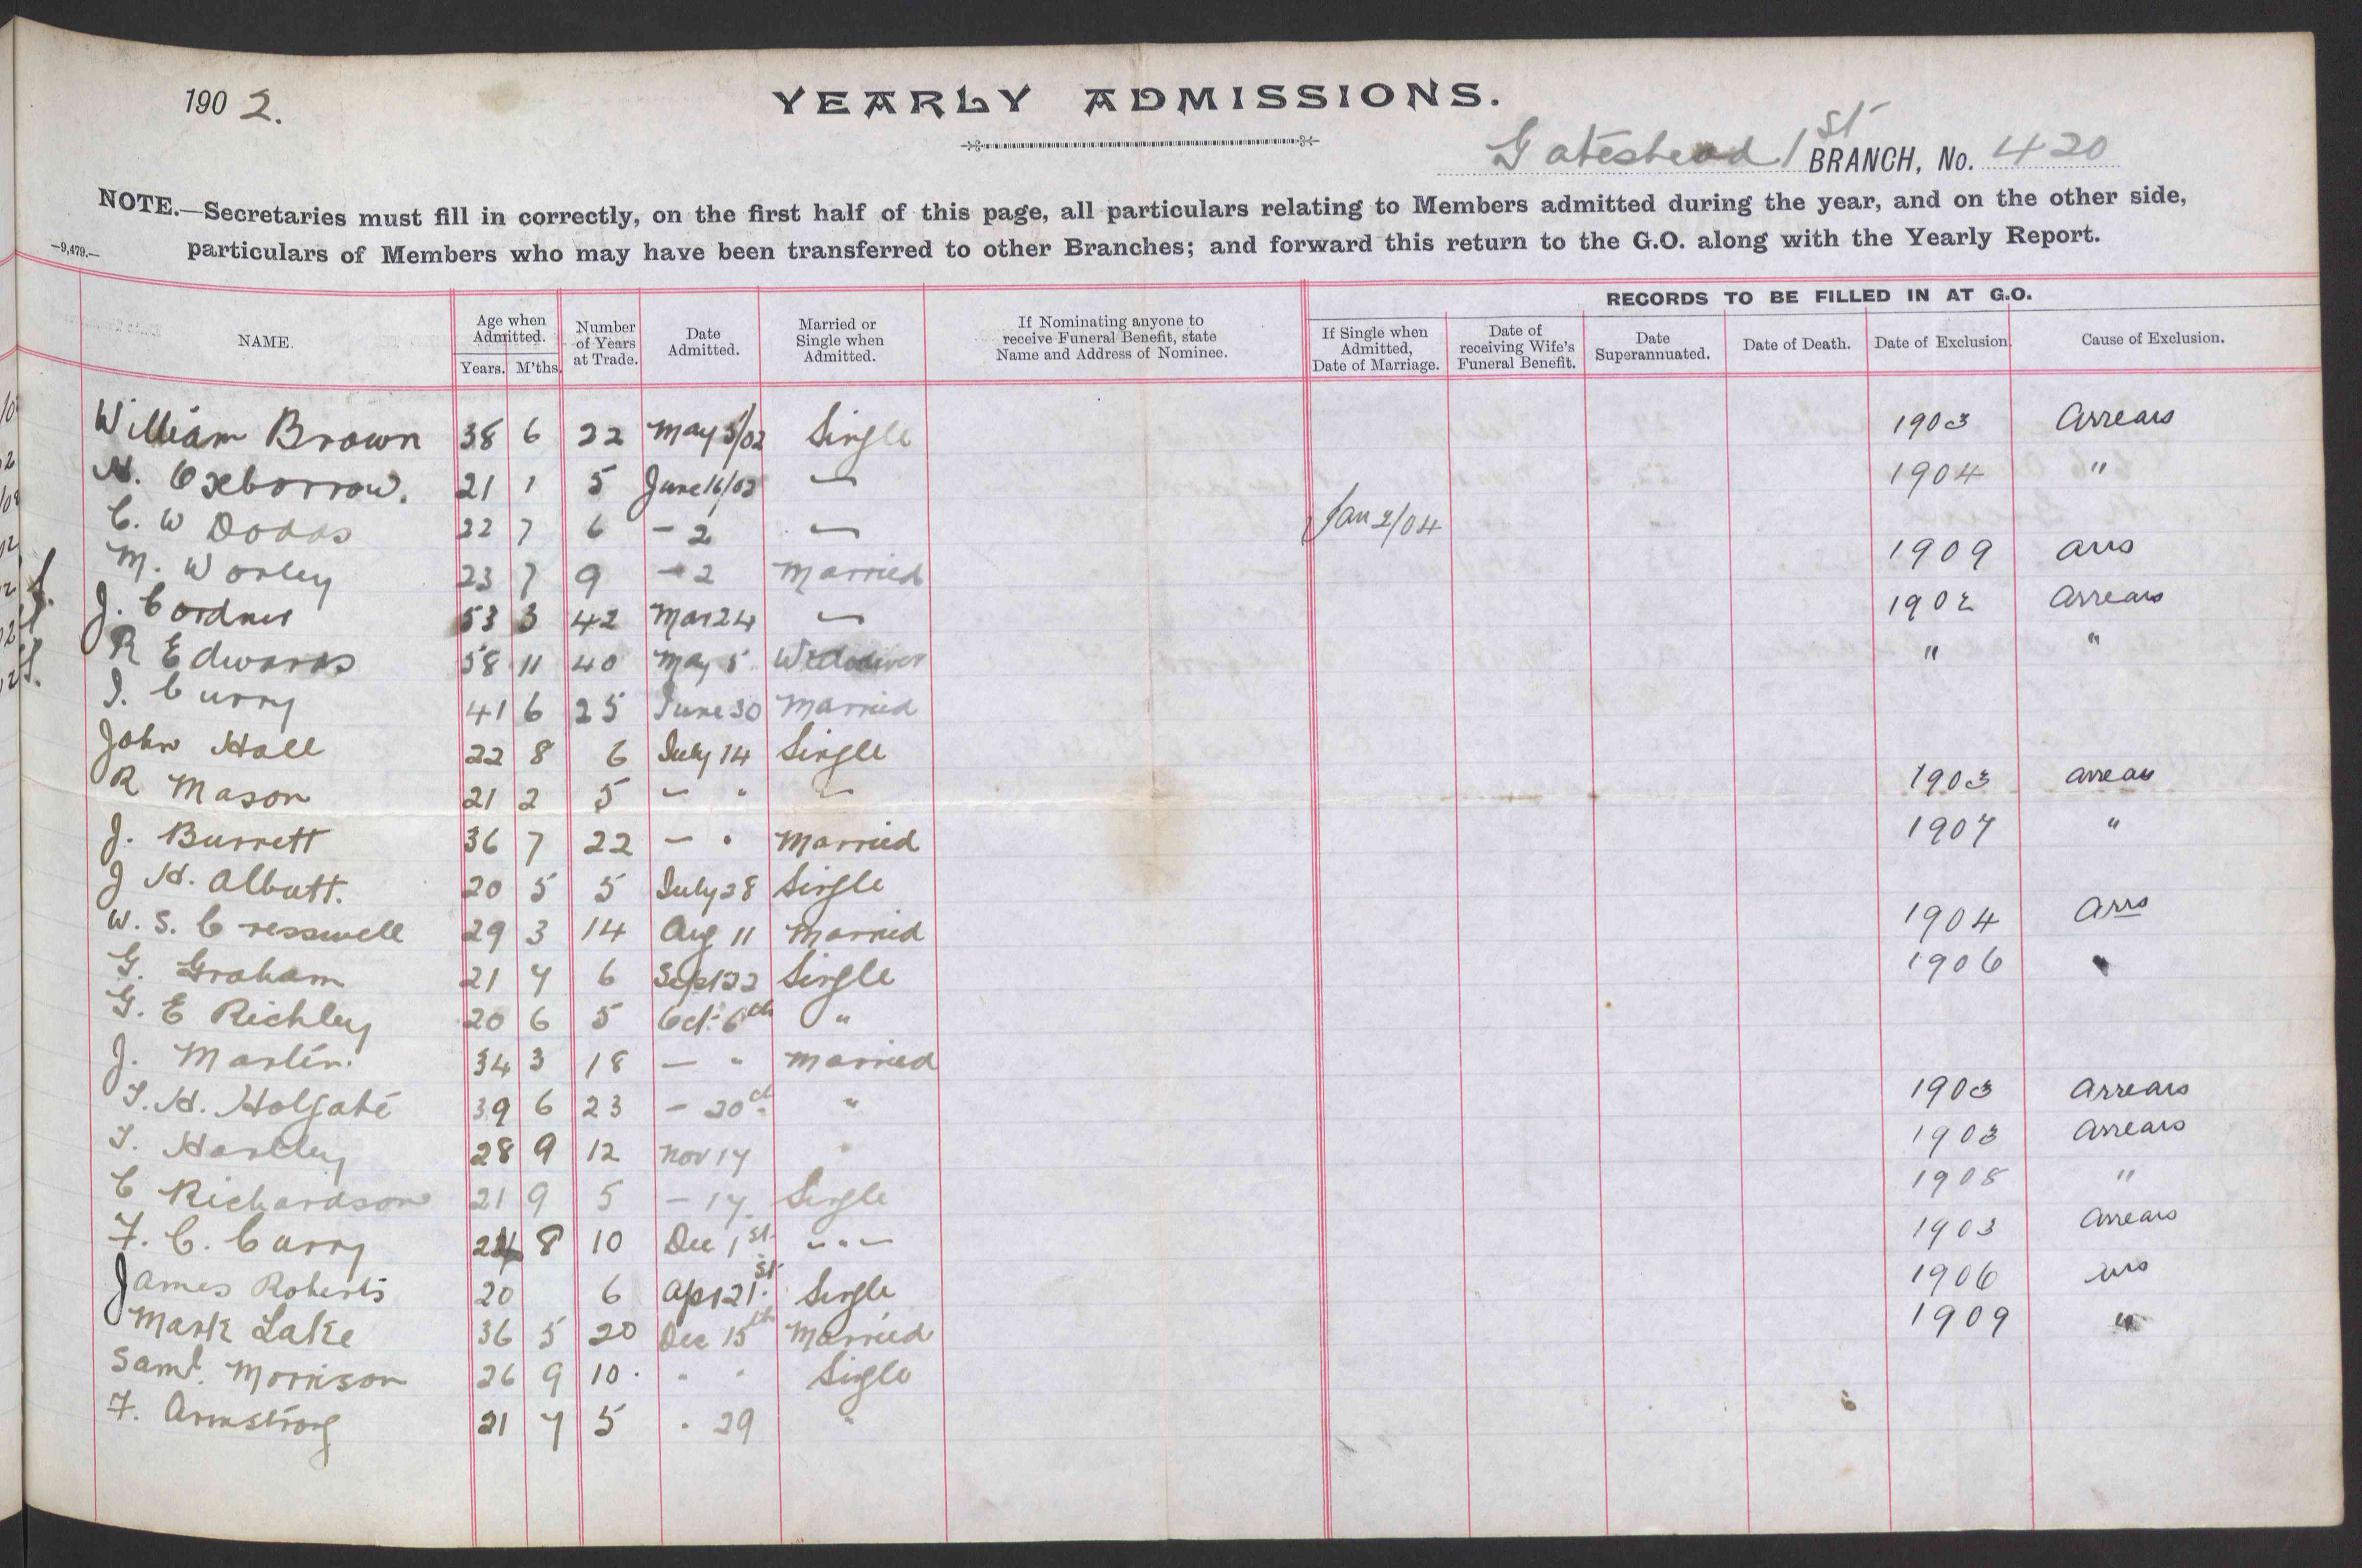 1902.
YEARLY ADMISSIONS.
Gateshead 1st BRANCH, No. 420
NOTE.—Secretaries must fill in correctly, on the first half of this page, all particulars relating to Members admitted during the year, and on the other side,
—9,479.— particulars of Members who may have been transferred to other Branches; and forward this return to the G.O. along with the Yearly Report.
RECORDS TO BE FILLED IN AT G.O.
NAME. Age when Admitted. Years. M'ths. Number of Years at Trade. Date Admitted. Married or Single when Admitted. If Nominating anyone to receive Funeral Benefit, state Name and Address of Nominee. If Single when Admitted, Date of Marriage. Date of receiving Wife's Funeral Benefit. Date Superannuated. Date of Death. Date of Exclusion Cause of Exclusion.
William Brown 38 6 22 May 5/02 Single 1903 Arrears
N. Oxborrow. 21 1 5 June 16/02 — 1904 "
C. W Dodds 22 7 6 — 2 — Jan 2/04
M. Worley 23 7 9 — 2 Married 1909 arrs
J. Cordner 53 3 42 Mar 24 — 1902 Arrears
R Edwards 58 11 40 May 5 Widower " "
J. Curry 41 6 25 June 30 Married
John Hall 22 8 6 July 14 Single
R Mason 21 2 5 — " — 1903 arrears
J. Burrett 36 7 22 — " Married 1907 "
J H. Albutt. 20 5 5 July 28 Single
W. S. Cresswell 29 3 14 Aug 11 Married 1904 Arrs
G. Graham 21 7 6 Sept 22 Single 1906 "
G. E Richley 20 6 5 Oct. 6th "
J. Martin. 34 3 18 — " Married
T. H. Holgate 39 6 23 — 20th " 1903 Arrears
T. Hartley 28 9 12 Nov 17 " 1903 Arrears
C Richardson 21 9 5 — 17 Single 1908 "
F. C. Curry 24 8 10 Dec 1st — " — 1903 Arrears
James Roberts 20 6 Apr 21st Single 1906 arrs
Mark Lake 36 5 20 Dec 15th Married 1909 "
Saml. Morrison 26 9 10 " " Single
F. Armstrong 21 7 5 " 29 "